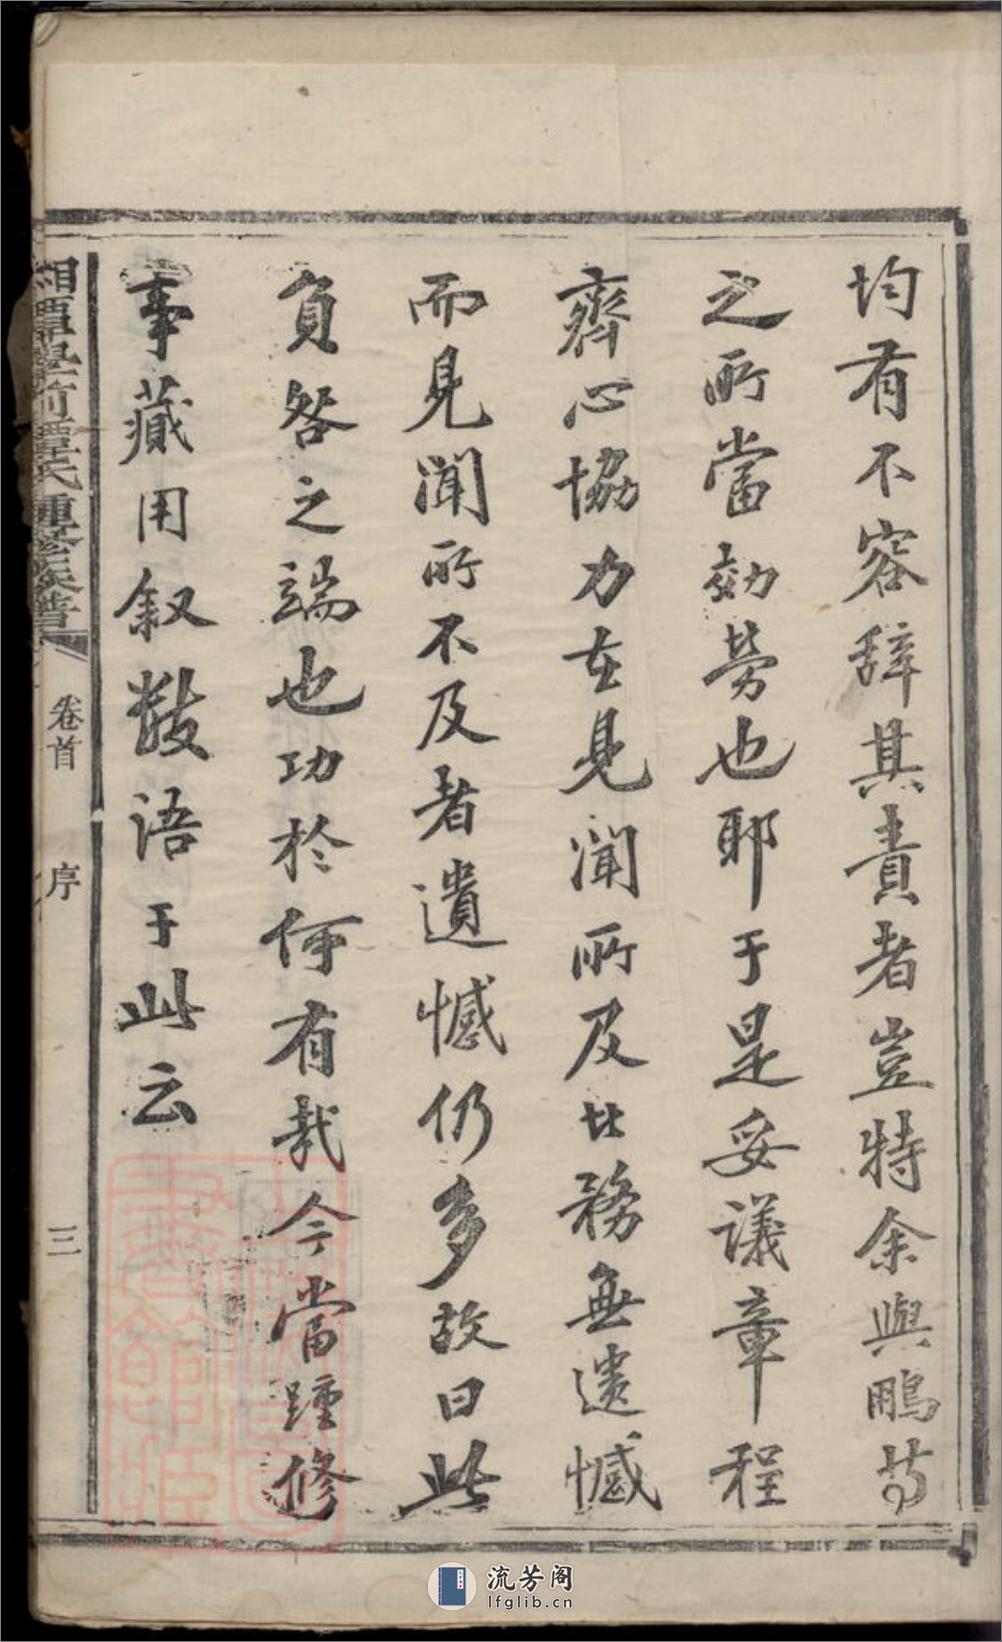 均有不容辞其責者豈特余與鵬等
之所當効勞也耶于是妥議章程
齊心協力在見聞所及者務無遺憾
而見聞所不及者遺憾仍多故曰此
負咎之端也功於何有哉今當踵修
事蕆用叙數语于此云
湘潭學前譚氏重修族譜
卷首
序
三
流芳阁
lfglib.cn